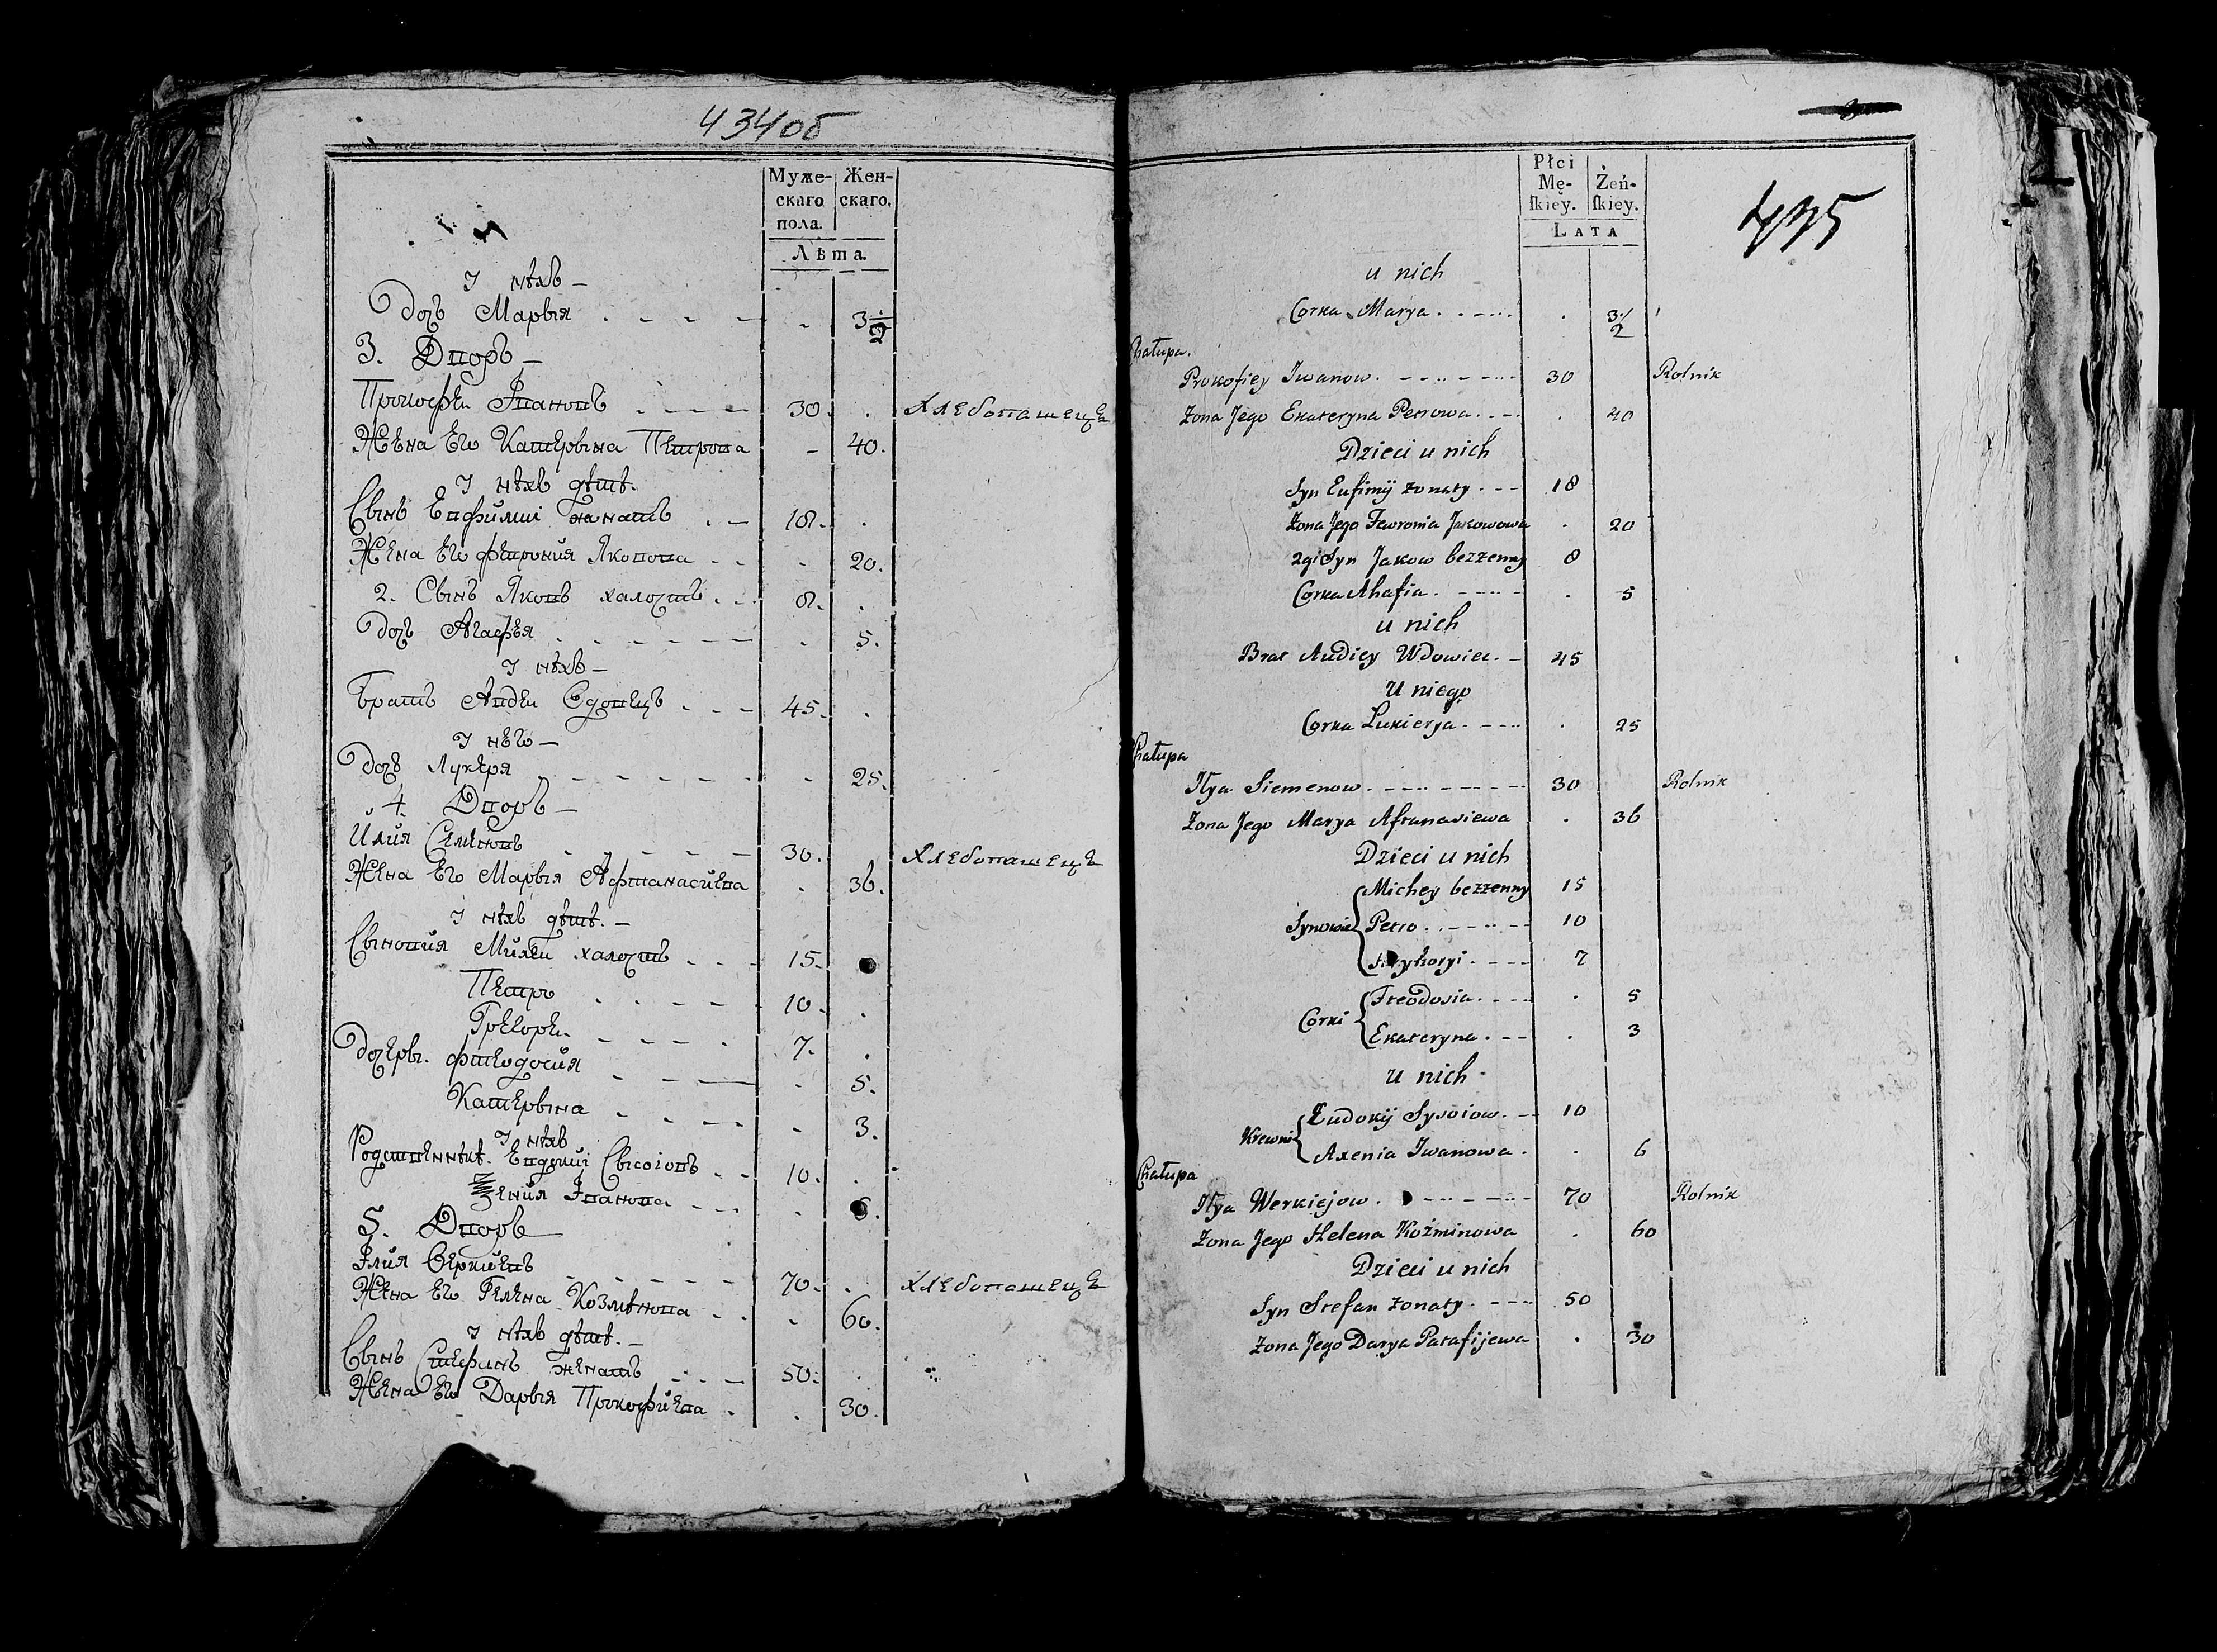 434об
Муже-
скаго
пола.
Жен-
скаго.
Лѣта.
У нѣхъ –
Дочъ Марыя 3 1/2
3. Дворъ –
Прокофѣи Ивановъ 30. Хлебопашецъ
Жена Его Катерына Петрова 40.
У нѣхъ дѣтѣ.
Сынъ Евфимиі жанатъ 18.
Жена Его Феврония Яковова 20.
2. Сынъ Яковъ халостъ 8.
Дочъ Агафѣя 5.
У нѣхъ –
Братъ Авдѣи Вдовецъ 45.
У него –
Дочъ Лукеря 25.
4. Дворъ –
Илия Семеновъ 30. Хлебопашецъ
Жена Его Марыя Афтанасиева 36.
У нѣхъ дѣтѣ. –
Сыновия Михеи халостъ 15.
Петръ 10.
Грегоре. 7.
Дочеры. Фтеодосия 5.
Катерына 3.
У нѣхъ
Родственнѣкѣ. Евдокиі Сысоіовъ 10.
ения Іванова 6.
5. Дворъ
Ілия Веркиевъ 70. Хлебопашецъ
Жена Его Гелена Козмѣнова 60.
У нѣхъ дѣтѣ. –
Сынъ Стефанъ женатъ 50.
Жена Его Дарыя Прокофиева 30.
435
Płci
Mę-
skiey.
Żeń-
skiey.
LATA
u nich
Corka Marya 3 1/2
Chałupa.
Prokofiey Iwanow 30 Rolnik
Żona Jego Ekateryna Petrowa 40
Dzieci u nich
Syn Eufimij żonaty 18
Żona Jego Fewronia Jakowowa 20
2gi Syn Jakow bezżenny 8
Corka Ahafia 5
u nich
Brat Audiey Wdowiec 45
U niego
Corka Lukierja 25
Chałupa
Ilya Siemenow 30 Rolnik
Żona Jego Marya Aftanasiewa 36
Dzieci u nich
Synowie Michey bezżenny 15
Petro 10
yhoryi 7
Corki Fteodosia 5
Ekateryna 3
u nich
Krewni Eudokij Sysoiow 10
Axenia Iwanowa 6
Chałupa
Ilya Werkiejow 70 Rolnik
Żona Jego Helena Koźminowa 60
Dzieci u nich
Syn Stefan żonaty 50
Żona Jego Darya Parafijewa 30